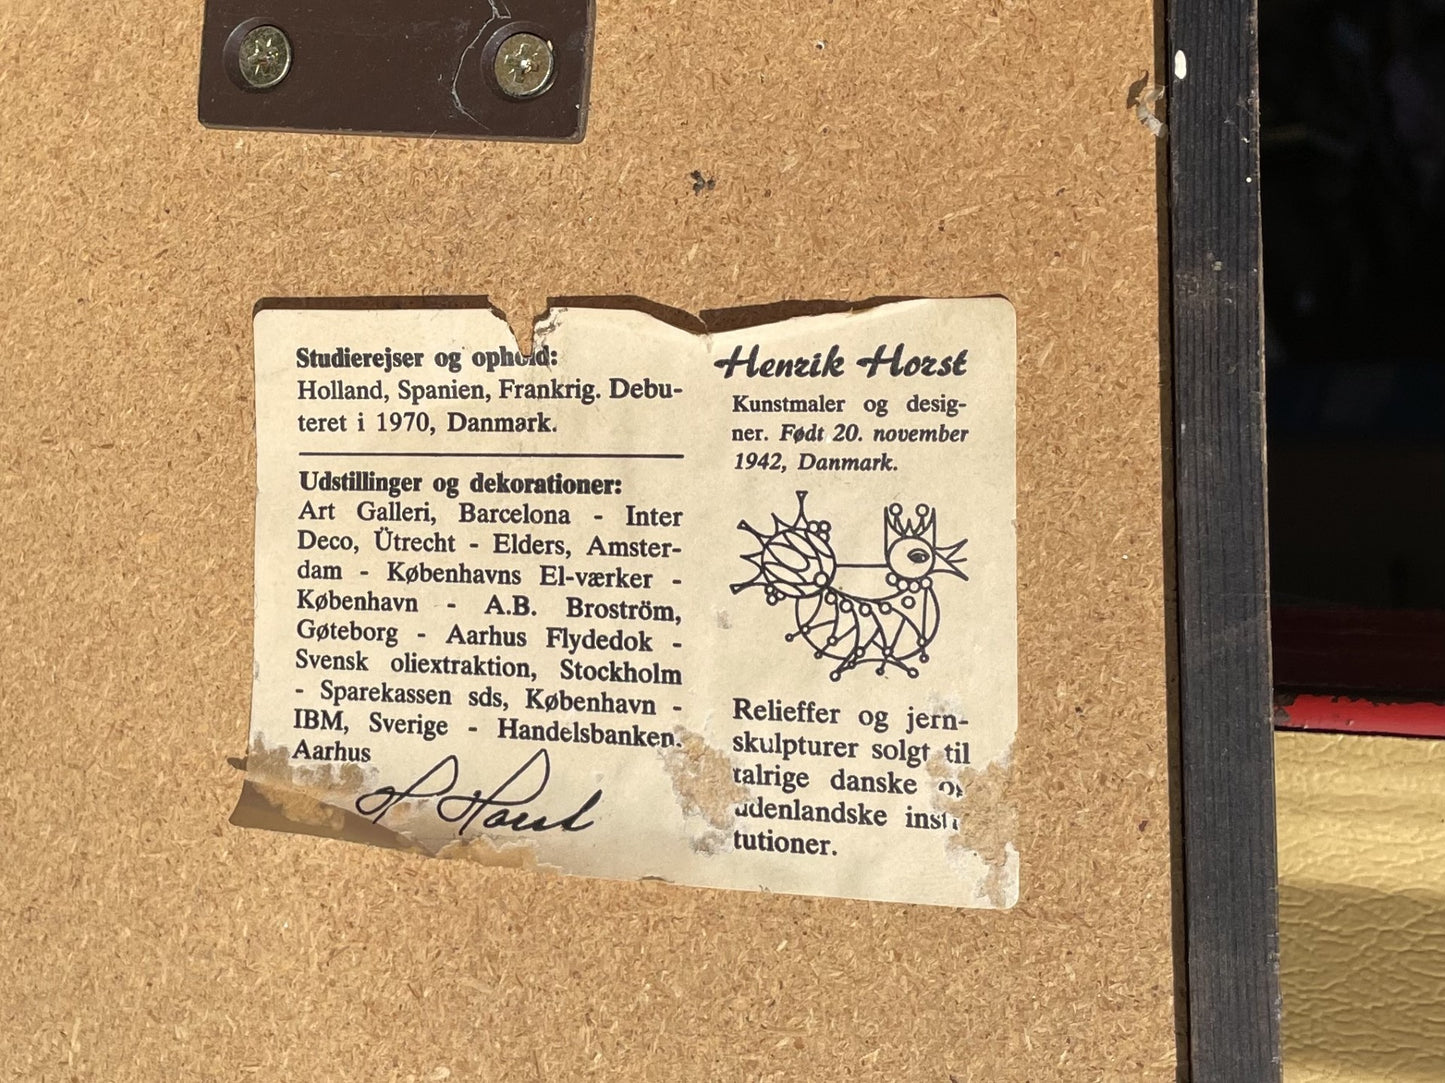 Studierejser og ophold:
Holland, Spanien, Frankrig. Debu-
teret i 1970, Danmark.
Udstillinger og dekorationer:
Art Galleri, Barcelona - Inter
Deco, Ütrecht - Elders, Amster-
dam - Københavns El-værker -
København - A.B. Broström,
Gøteborg - Aarhus Flydedok -
Svensk oliextraktion, Stockholm
- Sparekassen sds, København -
IBM, Sverige - Handelsbanken.
Aarhus
H Horst
Henrik Horst
Kunstmaler og desig-
ner. Født 20. november
1942, Danmark.
Relieffer og jern-
skulpturer solgt til
talrige danske og
udenlandske insti
tutioner.